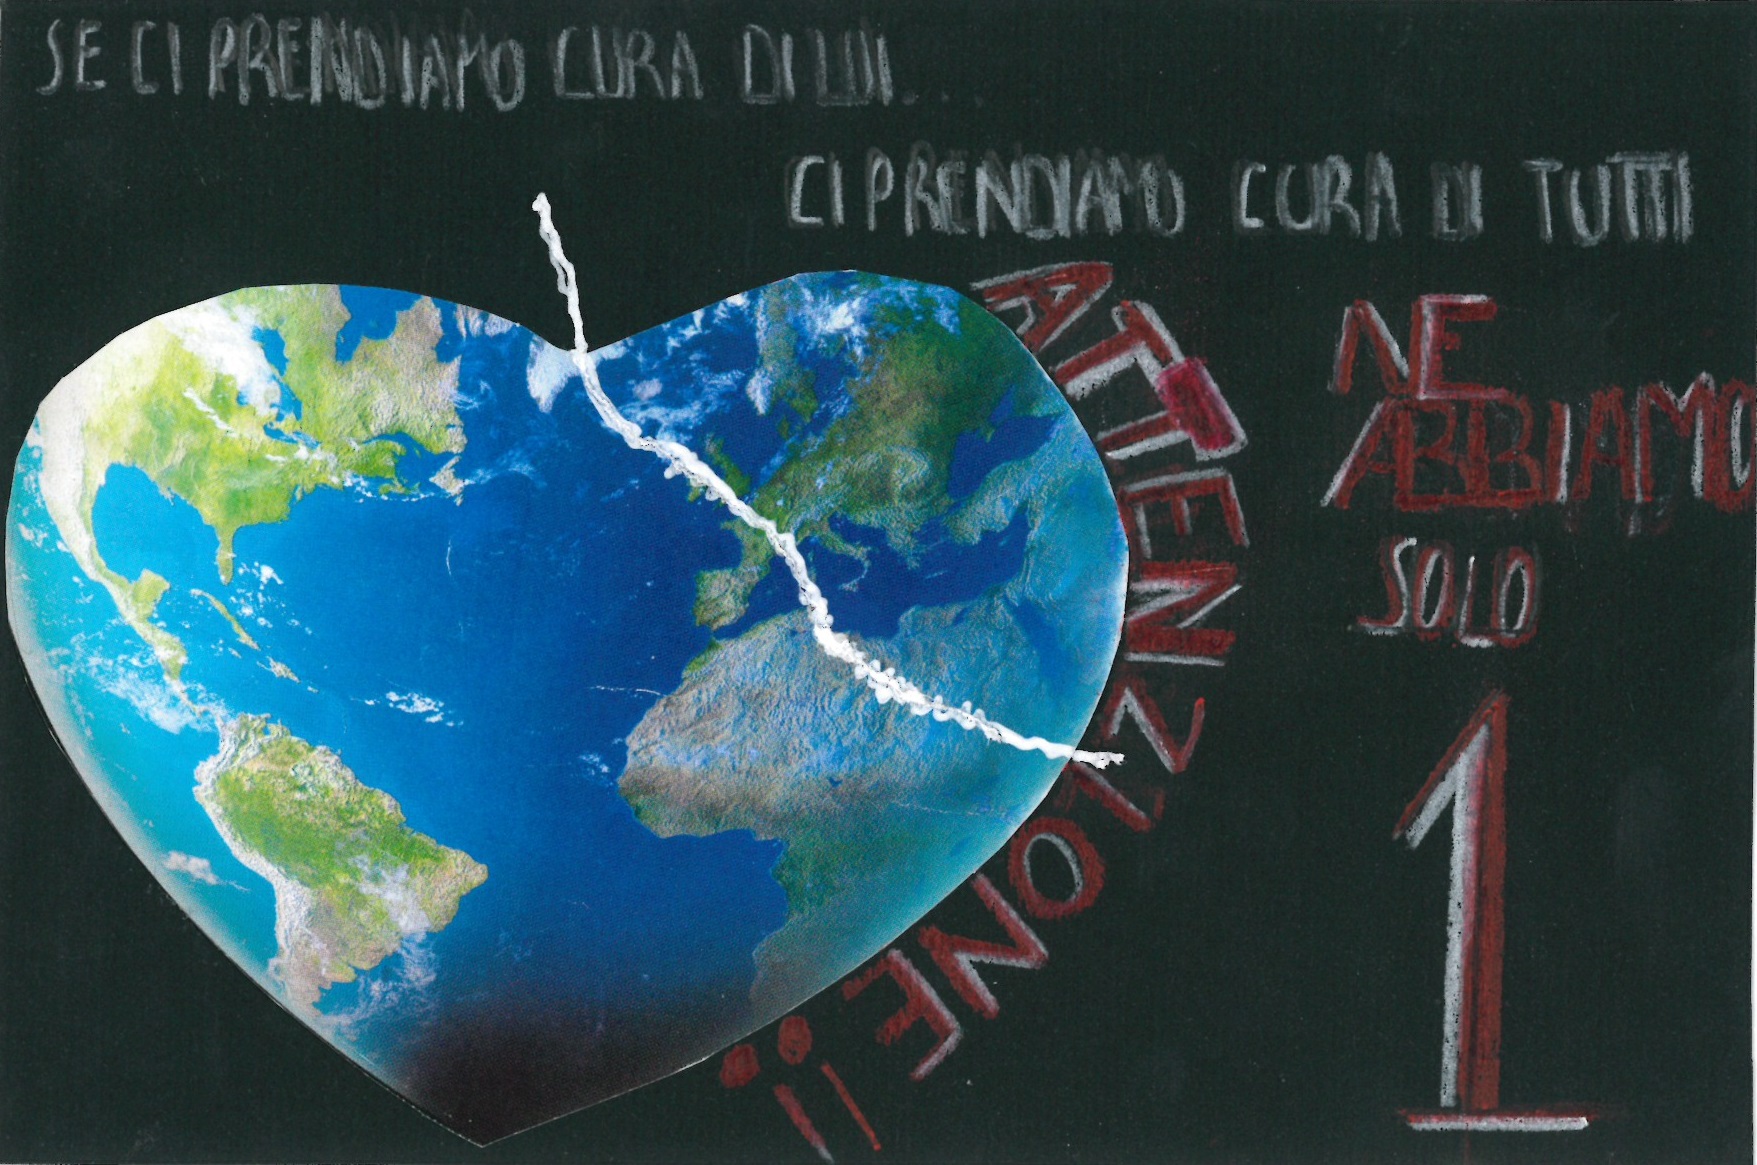 SE CI PRENDIAMO CURA DI LUI...
CI PRENDIAMO CURA DI TUTTI
ATTENZIONE!!
NE
ABBIAMO
SOLO
1